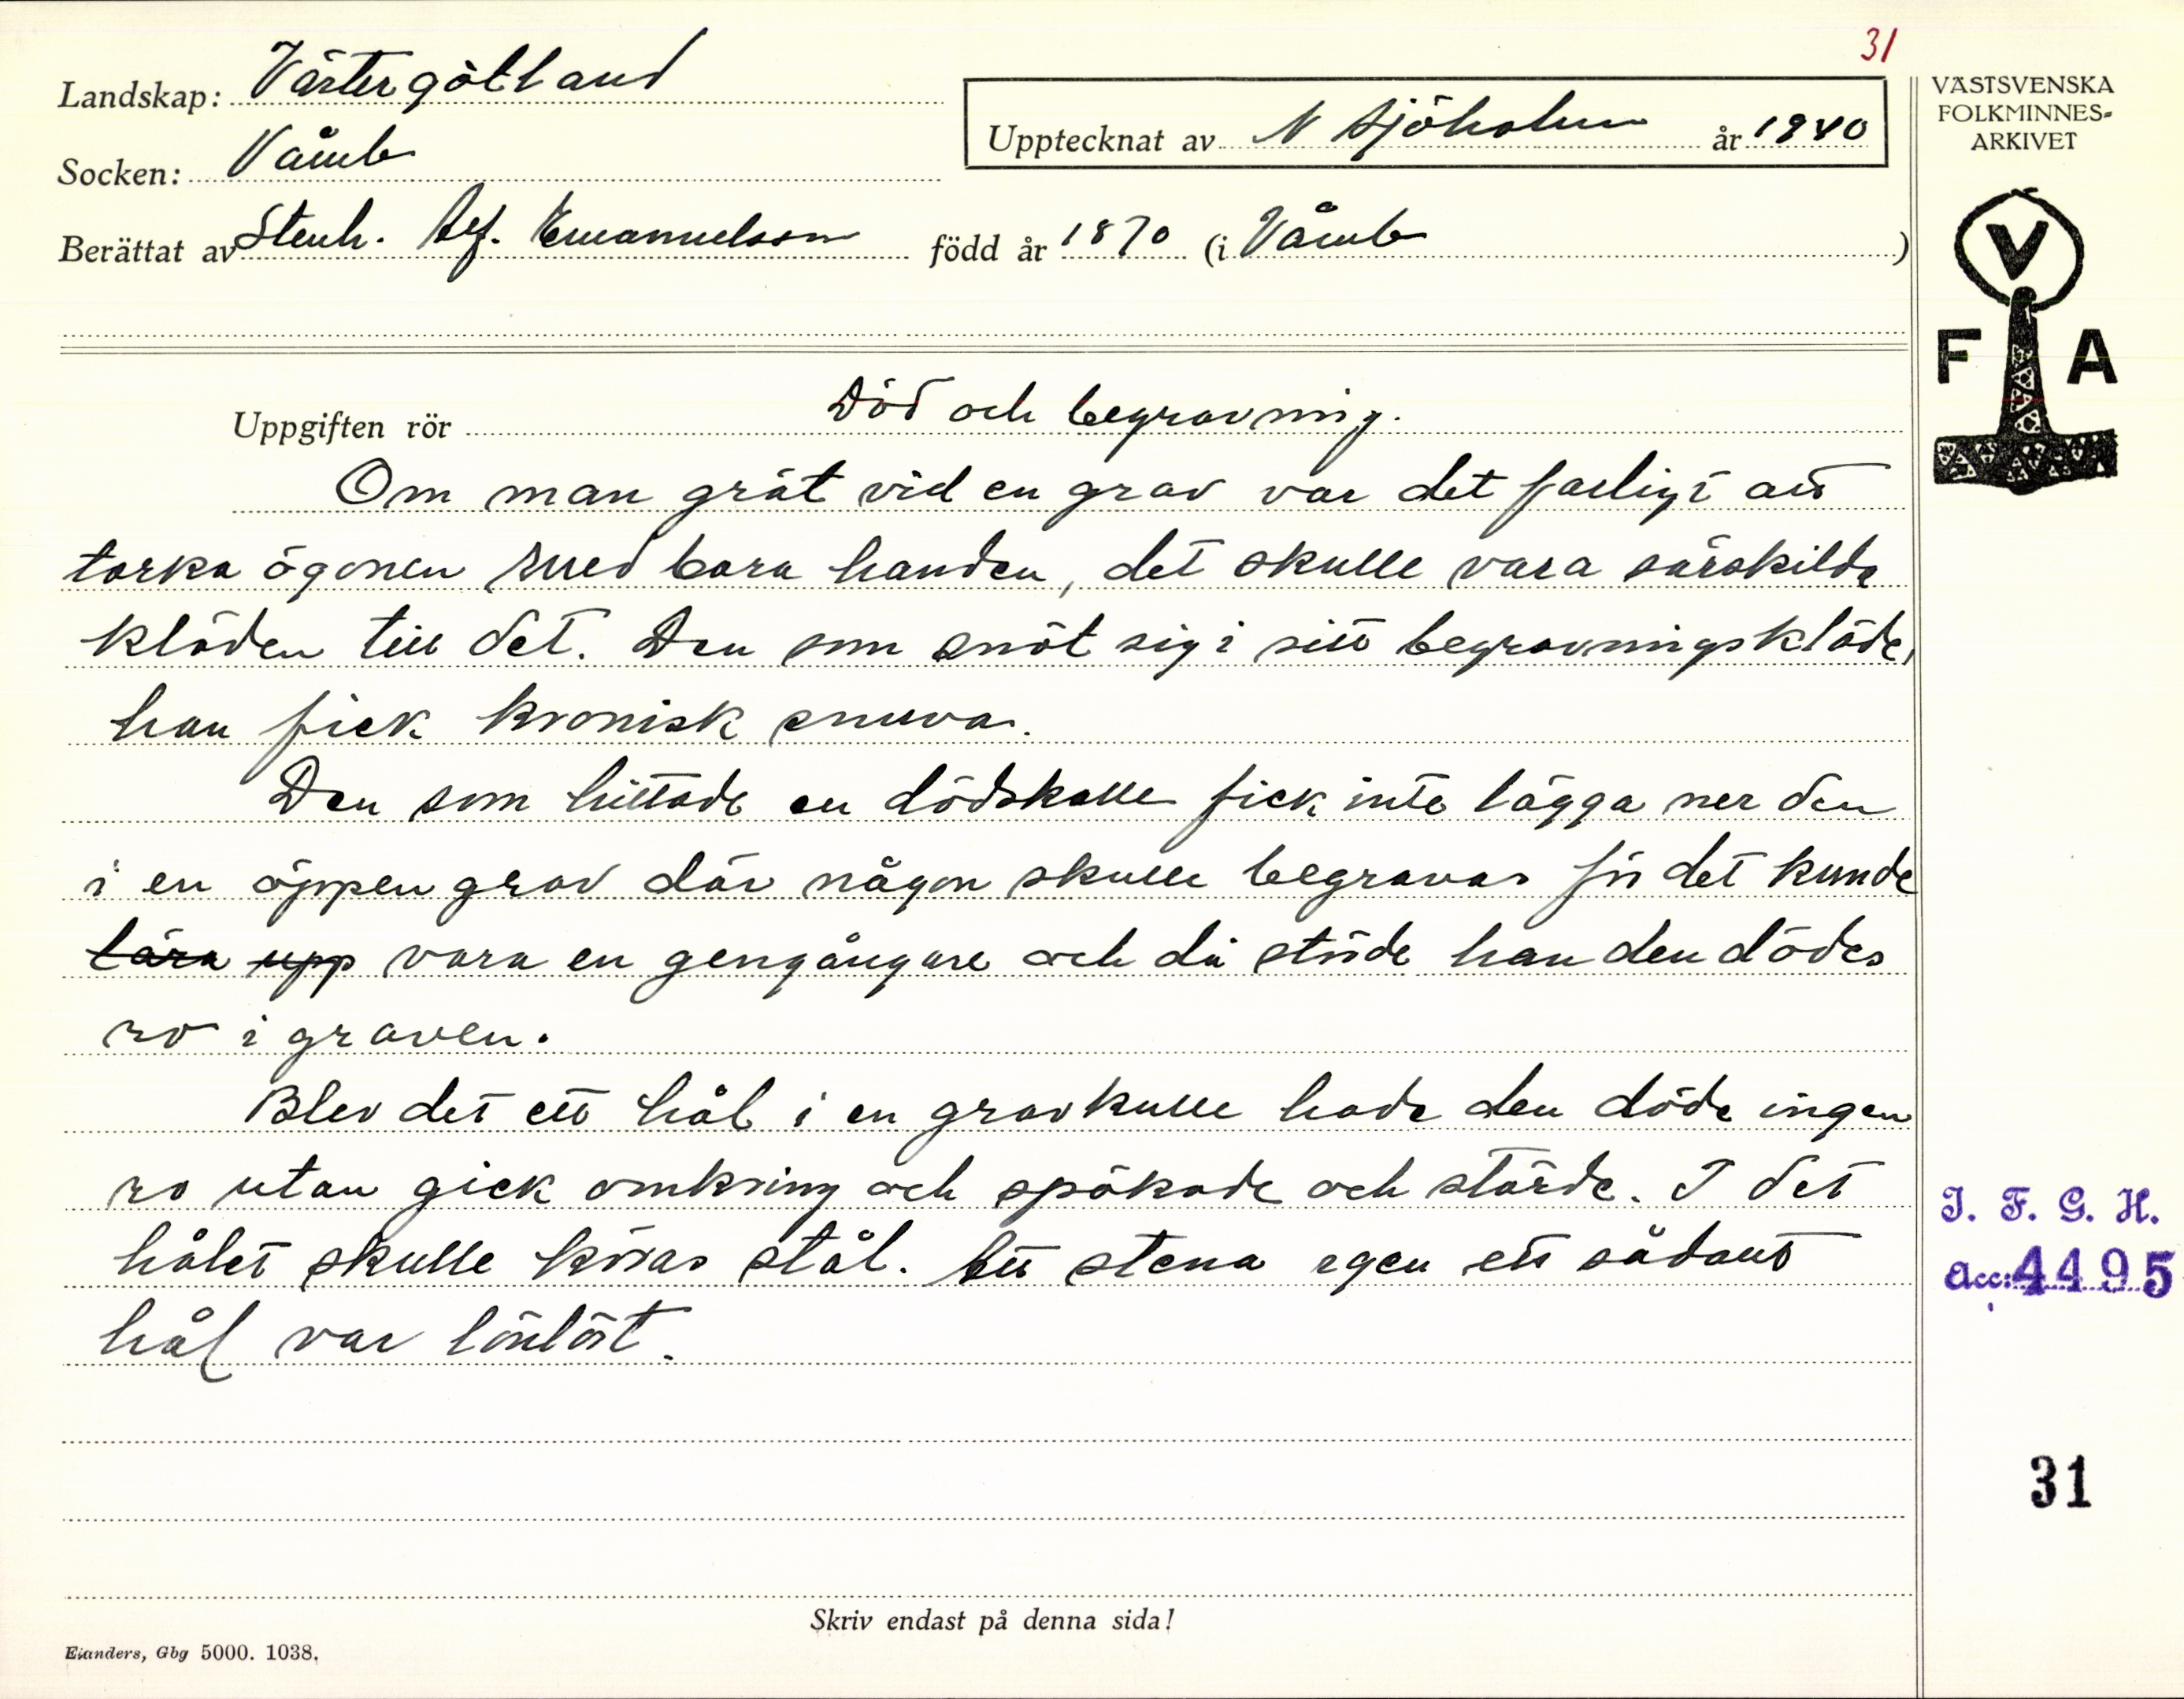 31
Landskap: Västergötland
Upptecknat av N Sjöholm år 1940
VÄSTSVENSKA
FOLKMINNES-
ARKIVET
Socken: Våmb
Berättat av Stenh. Alf. Emanuelsson född år 1870 (i Våmb)
V
F A
Uppgiften rör Död och begravning.
Om man grät vid en grav var det farligt att
torka ögonen med bara handen, det skulle vara särskilda
kläden till det. Den som snöt sig i sitt begravningskläde,
han fick kronisk snuva.
Den som hittade en dödskalle fick inte lägga ner den
i en öppen grav där någon skulle begravas för det kunde
lära upp vara en gengångare och då störde han den dödes
ro i graven.
Blev det ett hål i en gravkulle hade den döde ingen
ro utan gick omkring och spökade och störde. I det
hålet skulle köras stål. Att stena egen ett sådant
hål var lönlöst.
I. F. G. H.
Acc: 4495
31
Skriv endast på denna sida!
Elanders, Gbg 5000. 1038.